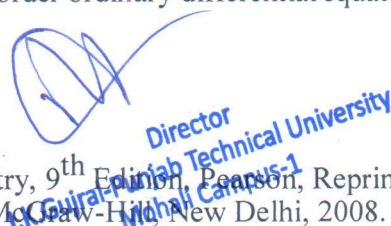 order ordinary differential equa
Director
I.K.Gujral Punjab Technical University
Mohali Campus-1
try, 9th Edition, Pearson, Reprin
McGraw-Hill, New Delhi, 2008.